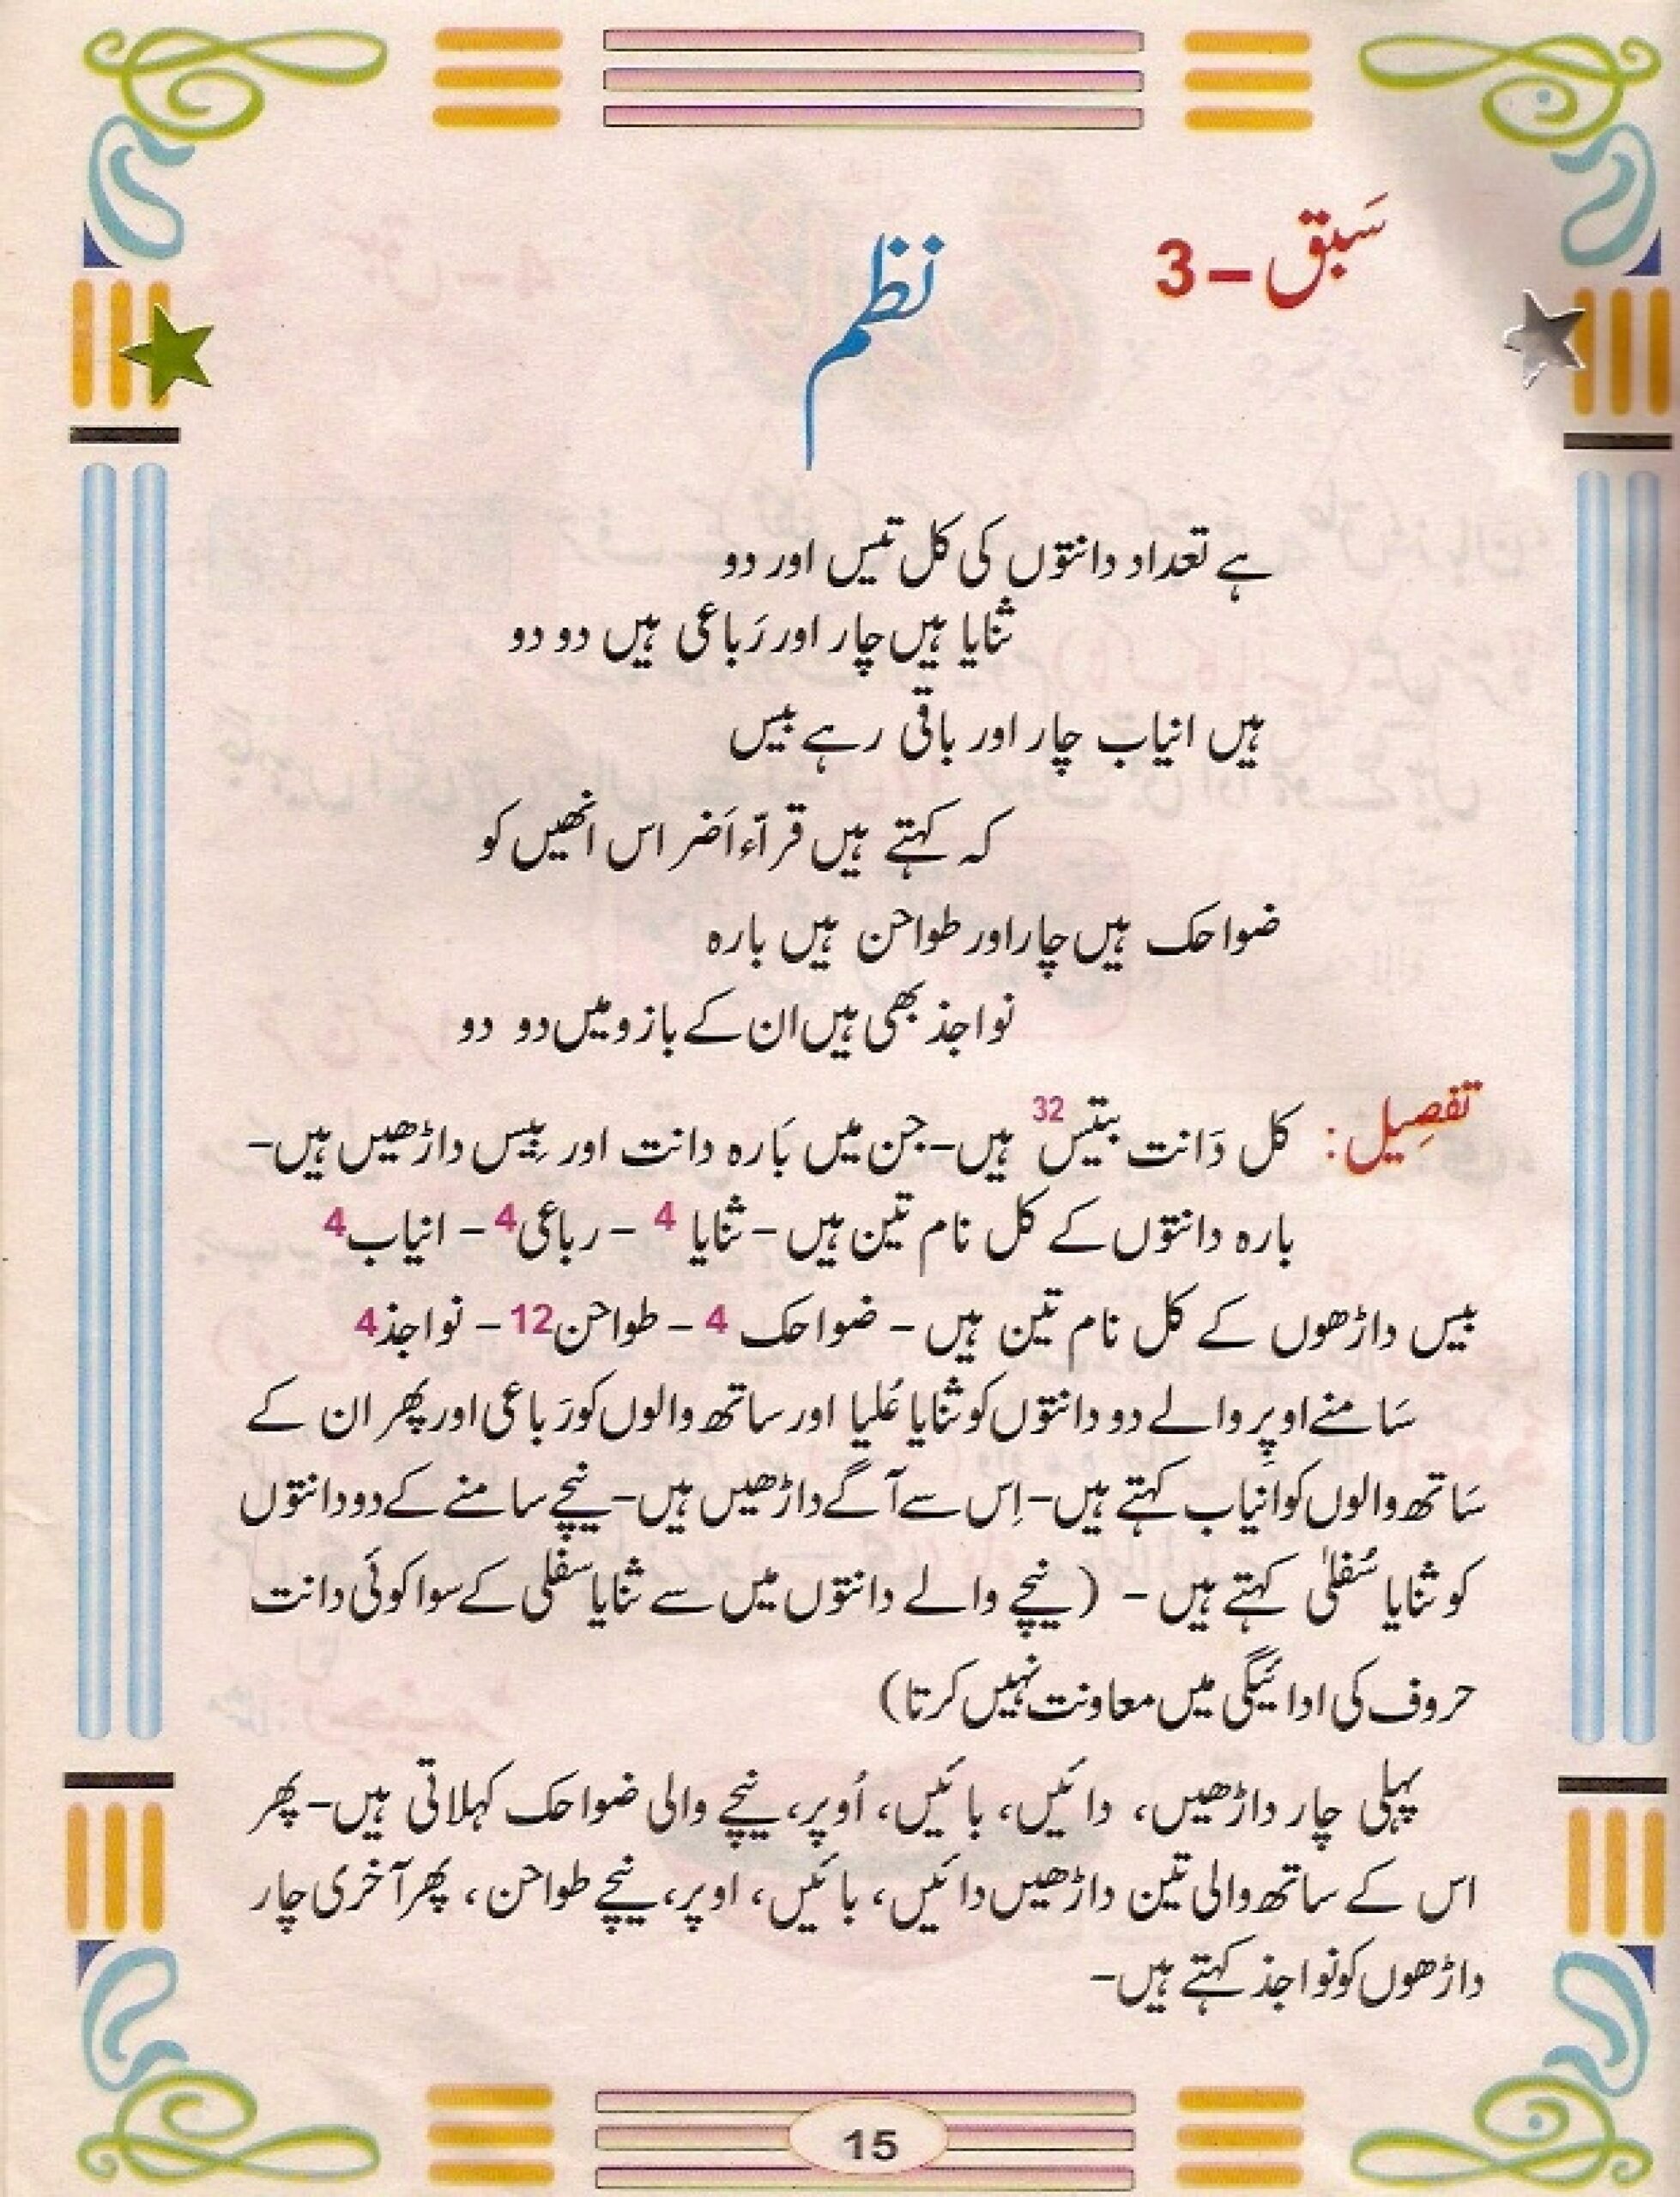 سَبق – 3
نظم
ہے تعداد دانتوں کی کل تیس اور دو
ثنایا ہیں چار اور رَباعی ہیں دو دو
ہیں انیاب چار اور باقی رہے بیس
کہ کہتے ہیں قرآء اَضراس انھیں کو
ضواحک ہیں چار اور طواحن ہیں بارہ
نواجذ بھی ہیں ان کے بازو میں دو دو
تفصِیل: کل دَانت بتیس 32 ہیں- جن میں بَارہ دانت اور بِیس داڑھیں ہیں-
بارہ دانتوں کے کل نام تین ہیں - ثنایا 4 - رباعی 4 - انیاب 4
بیس داڑھوں کے کل نام تین ہیں - ضواحک 4 - طواحن 12 - نواجذ 4
سَامنے اوپر والے دو دانتوں کو ثنایا عُلیا اور ساتھ والوں کو رَباعی اور پھر ان کے
سَاتھ والوں کو انیاب کہتے ہیں- اِس سے آگے داڑھیں ہیں- نیچے سامنے کے دو دانتوں
کو ثنایا سُفلیٰ کہتے ہیں - (نیچے والے دانتوں میں سے ثنایا سفلی کے سوا کوئی دانت
حروف کی ادائیگی میں معاونت نہیں کرتا)
پہلی چار داڑھیں، دائیں، بائیں، اُوپر، نیچے والی ضواحک کہلاتی ہیں- پھر
اس کے ساتھ والی تین داڑھیں دائیں، بائیں، اوپر، نیچے طواحن، پھر آخری چار
داڑھوں کو نواجذ کہتے ہیں-
15